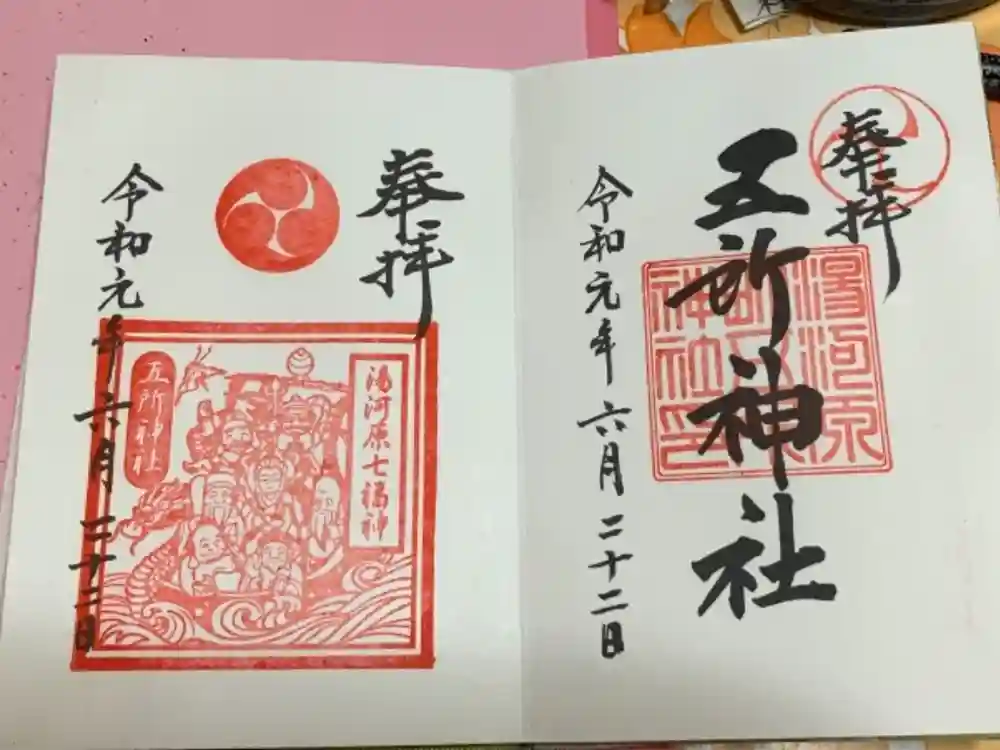 奉拝
五所神社
湯河原
五所神社印
令和元年 六月 二十二日
奉拝
湯河原七福神
五所神社
令和元年 六月 二十二日